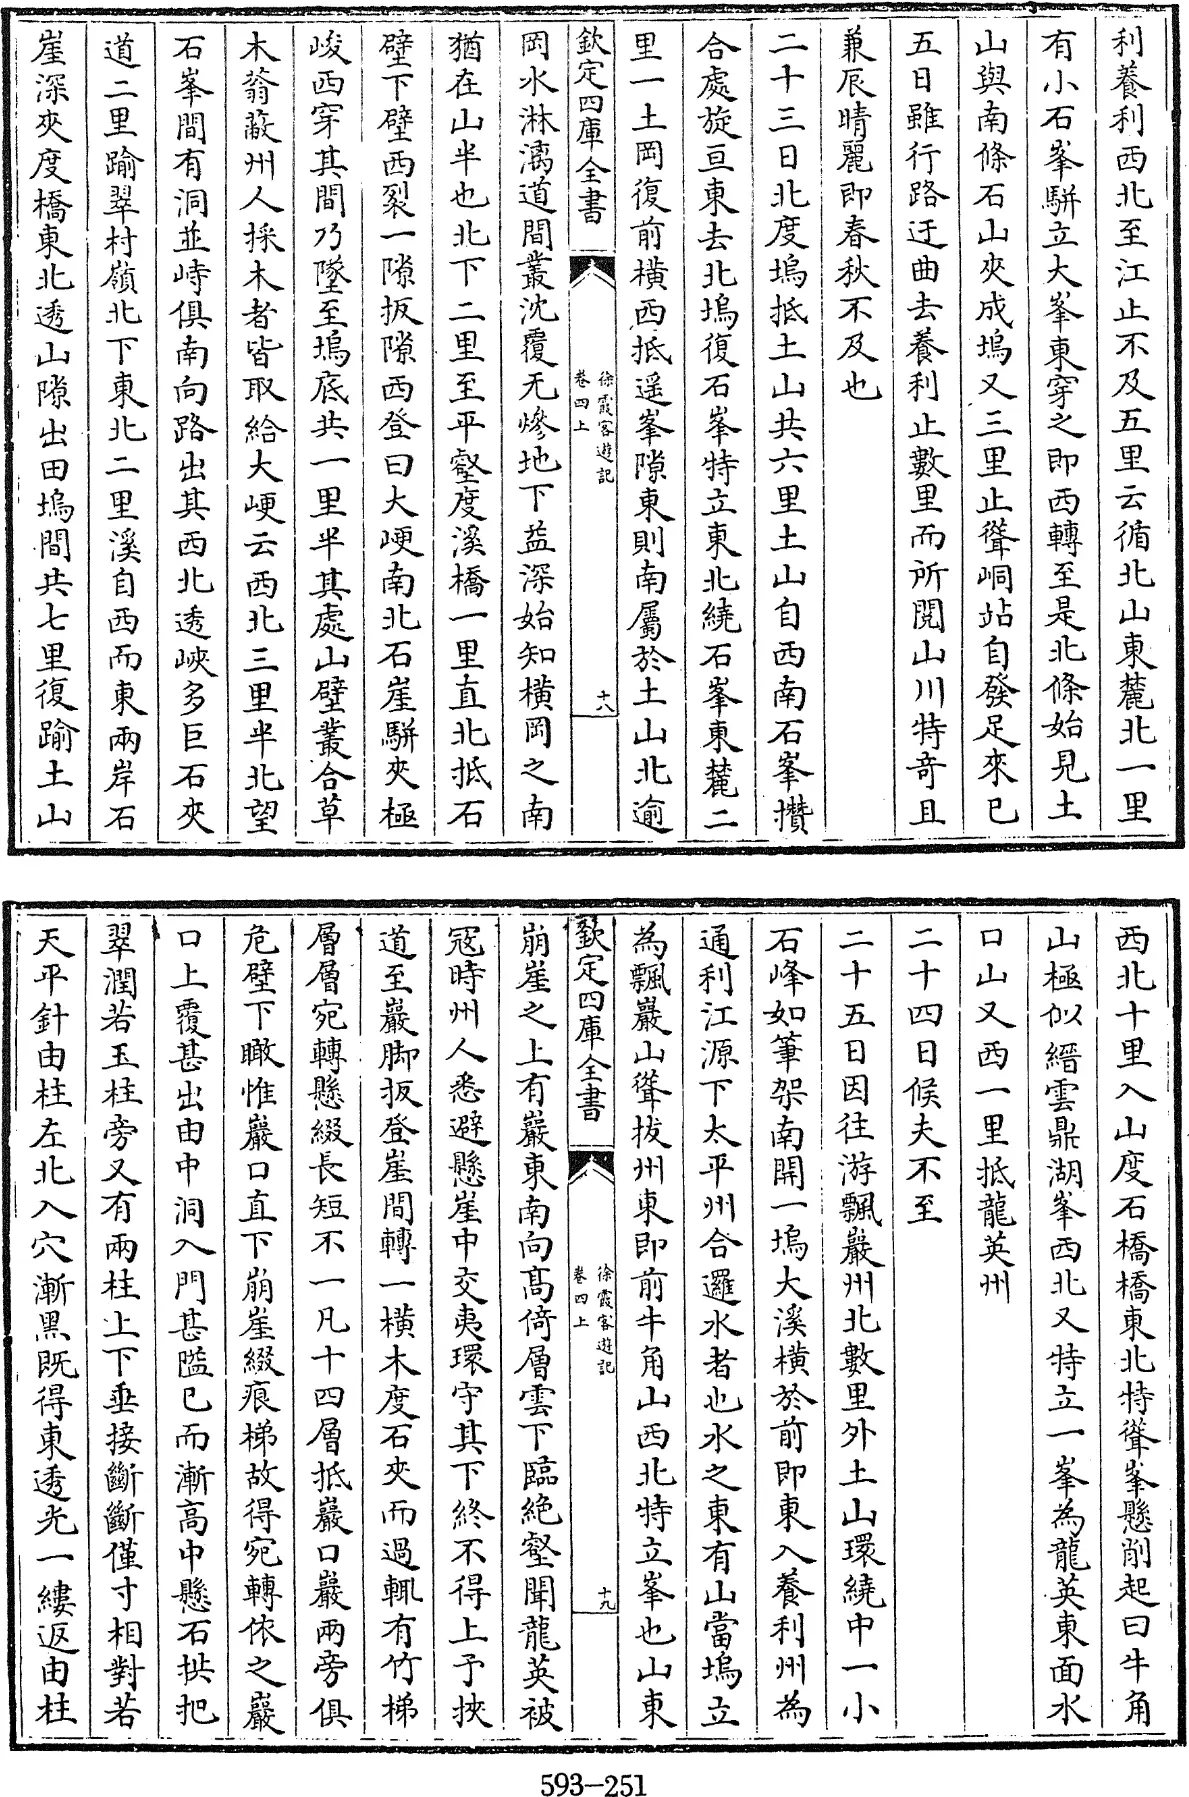 利養利西北至江止不及五里云循北山東麓北一里
有小石峯駢立大峯東穿之即西轉至是北條始見土
山與南條石山夾成塢又三里止聳峒站自發足來已
五日雖行路迂曲去養利止數里而所閱山川特奇且
兼辰晴麗即春秋不及也
二十三日北度塢抵土山共六里土山自西南石峯攢
合處旋亘東去北塢復石峯特立東北繞石峯東麓二
里一土岡復前橫西抵遥峯隙東則南屬於土山北逾
欽定四庫全書
徐霞客遊記
卷四上
十八
岡水淋漓道間叢沈覆无慘地下益深始知橫岡之南
猶在山半也北下二里至平壑度溪橋一里直北抵石
壁下壁西裂一隙扳隙西登曰大峺南北石崖駢夾極
峻西穿其間乃墜至塢底共一里半其處山壁叢合草
木蓊蔽州人採木者皆取給大峺云西北三里半北望
石峯間有洞並峙俱南向路出其西北透峽多巨石夾
道二里踰翠村嶺北下東北二里溪自西而東兩岸石
崖深夾度橋東北透山隙出田塢間共七里復踰土山
西北十里入山度石橋橋東北特聳峯懸削起曰牛角
山極似縉雲鼎湖峯西北又特立一峯為龍英東面水
口山又西一里抵龍英州
二十四日候夫不至
二十五日因往游飄巖州北數里外土山環繞中一小
石峰如筆架南開一塢大溪橫於前即東入養利州為
通利江源下太平州合邏水者也水之東有山當塢立
為飄巖山聳拔州東即前牛角山西北特立峯也山東
欽定四庫全書
徐霞客遊記
卷四上
十九
崩崖之上有巖東南向髙倚層雲下臨絶壑聞龍英被
冦時州人悉避懸崖中交夷環守其下終不得上予挾
道至巖脚扳登崖間轉一橫木度石夾而過輒有竹梯
層層宛轉懸綴長短不一凡十四層抵巖口巖兩旁俱
危壁下瞰惟巖口直下崩崖綴痕梯故得宛轉依之巖
口上覆甚出由中洞入門甚隘已而漸高中懸石拱把
翠潤若玉柱旁又有兩柱上下垂接斷斷僅寸相對若
天平針由柱左北入穴漸黑既得東透光一縷返由柱
593-251